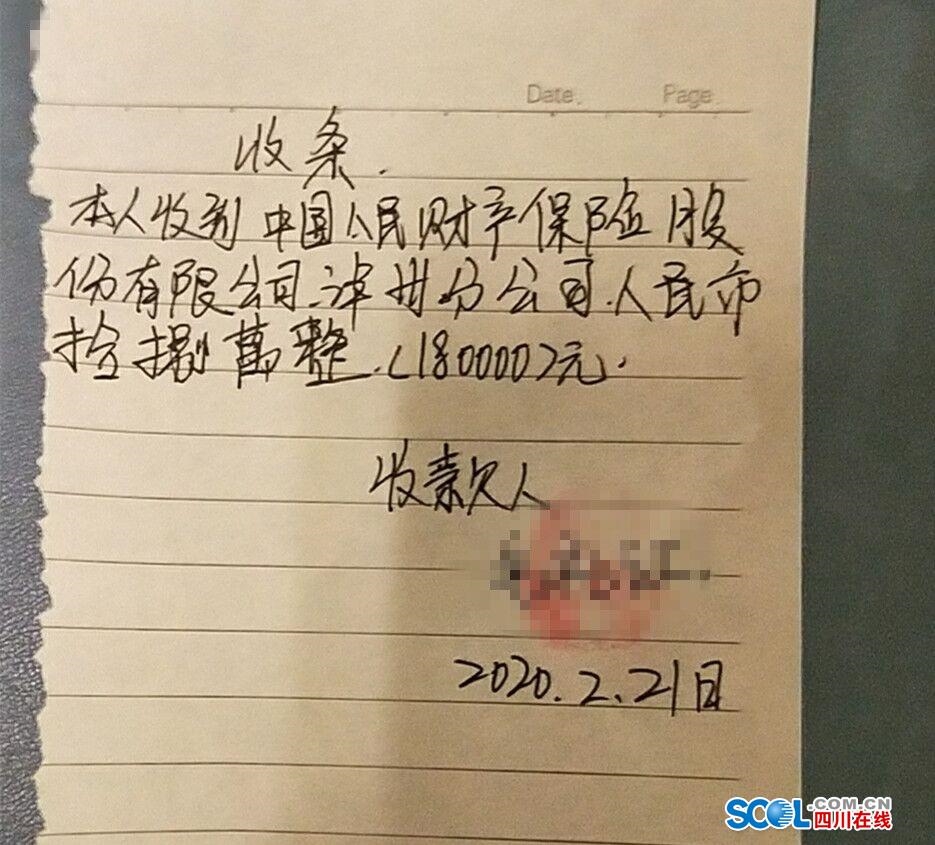 Date. Page.
收条.
本人收到中国人民财产保险股
份有限公司漳州分公司.人民币
捌萬整.(180000)元.
收款人
2020.2.21日
SCOL.COM.CN
四川在线